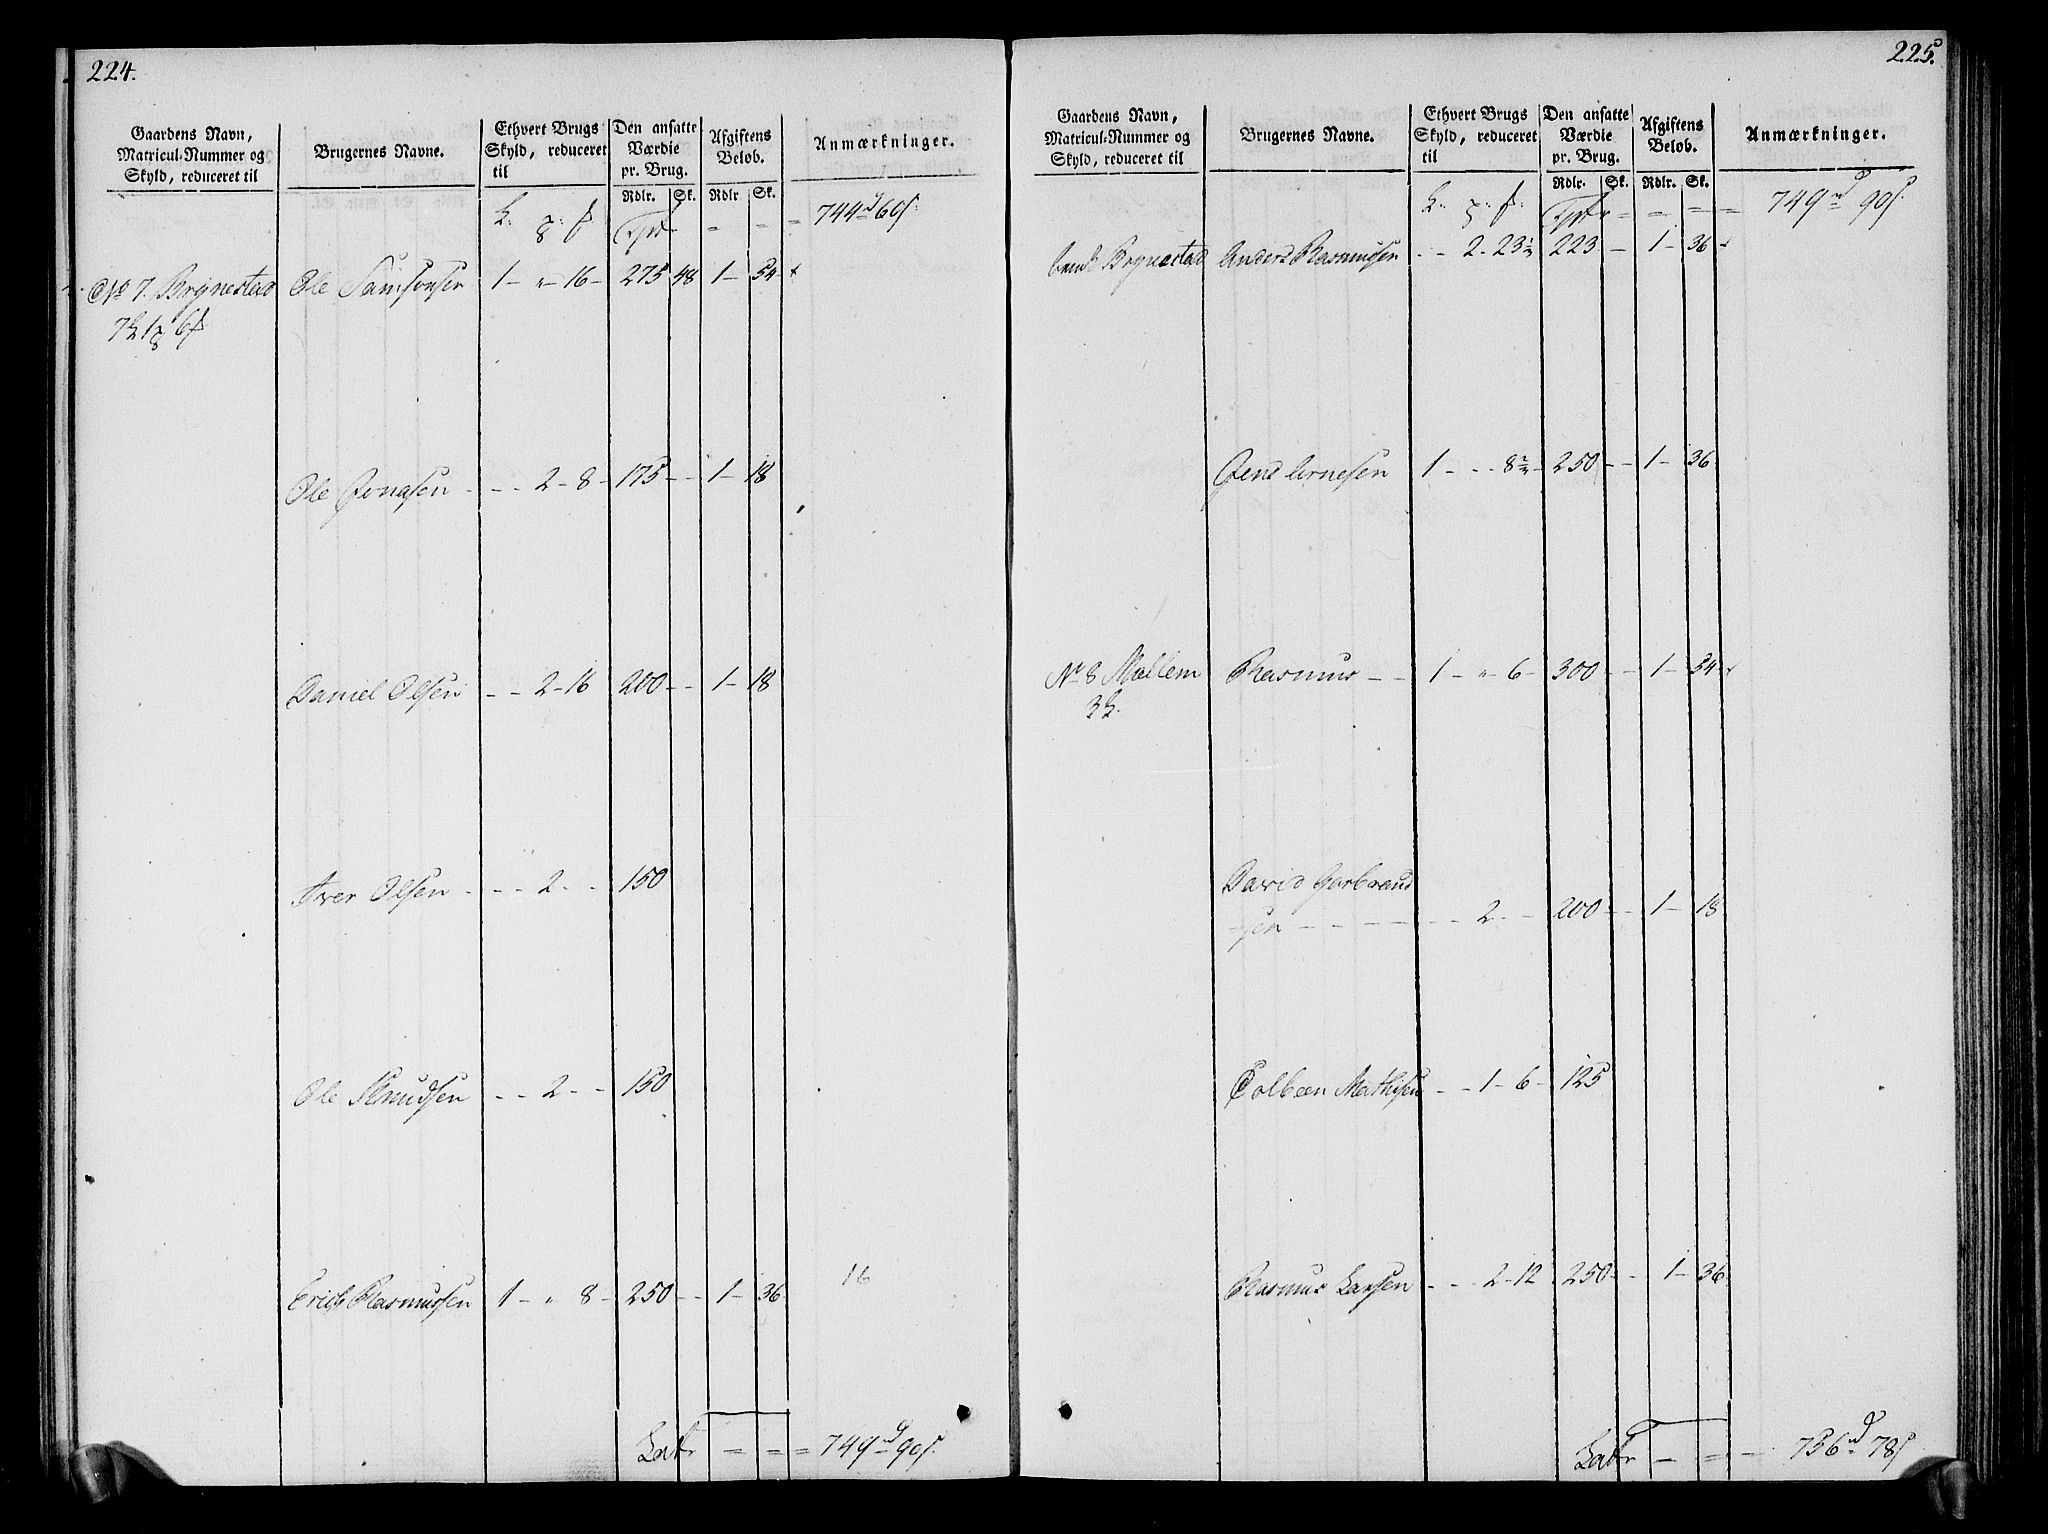 224.
Gaardens Navn, Matricul-Nummer og Skyld, reduceret til
Brugernes Navne.
Ethvert Brugs Skyld, reduceret til
Den ansatte Værdie pr. Brug.
Afgiftens Beløb.
Anmærkninger.
Rdlr. Sk. Rdlr Sk.
Tpt = = = 744 rd 60 s.
No 7. Brynestad Ole Samsonsen 1 - " - 16 - 275 48 1 - 54
Ole Jonasen - - - 2 - 8 - 175 - - 1 - 18
Daniel Olsen - - 2 - 16 200 - - 1 - 18
Iver Olsen - - - 2 - - 150
Ole Knudsen - - 2 - - 150
16
Erich Rasmussen 1 - " 8 - 250 - - 1 - 36
Latr = = = 749 rd 90 s.
225.
Gaardens Navn, Matricul-Nummer og Skyld, reduceret til
Brugernes Navne.
Ethvert Brugs Skyld, reduceret til
Den ansatte Værdie pr. Brug.
Afgiftens Beløb.
Anmærkninger.
Rdlr. Sk. Rdlr. Sk.
Tptr = = = = 749 rd 90 s
Brynestad Anders Rasmussen - - 2 - 23 223 - 1 - 36
Jens Arnesen 1 - - - 8 - 250 - - 1 - 36
No 8 Mollem Rasmus - - 1 - " 6 - 300 - - 1 - 54
David Garbrand
sen - - - - - 2 - - 200 - - 1 - 18
Colbeen Mathisen - - 1 - 6 - 125
Rasmus Larsen - - - 2 - 12 250 - - 1 - 36
Latr - = - 756 rd 78 s